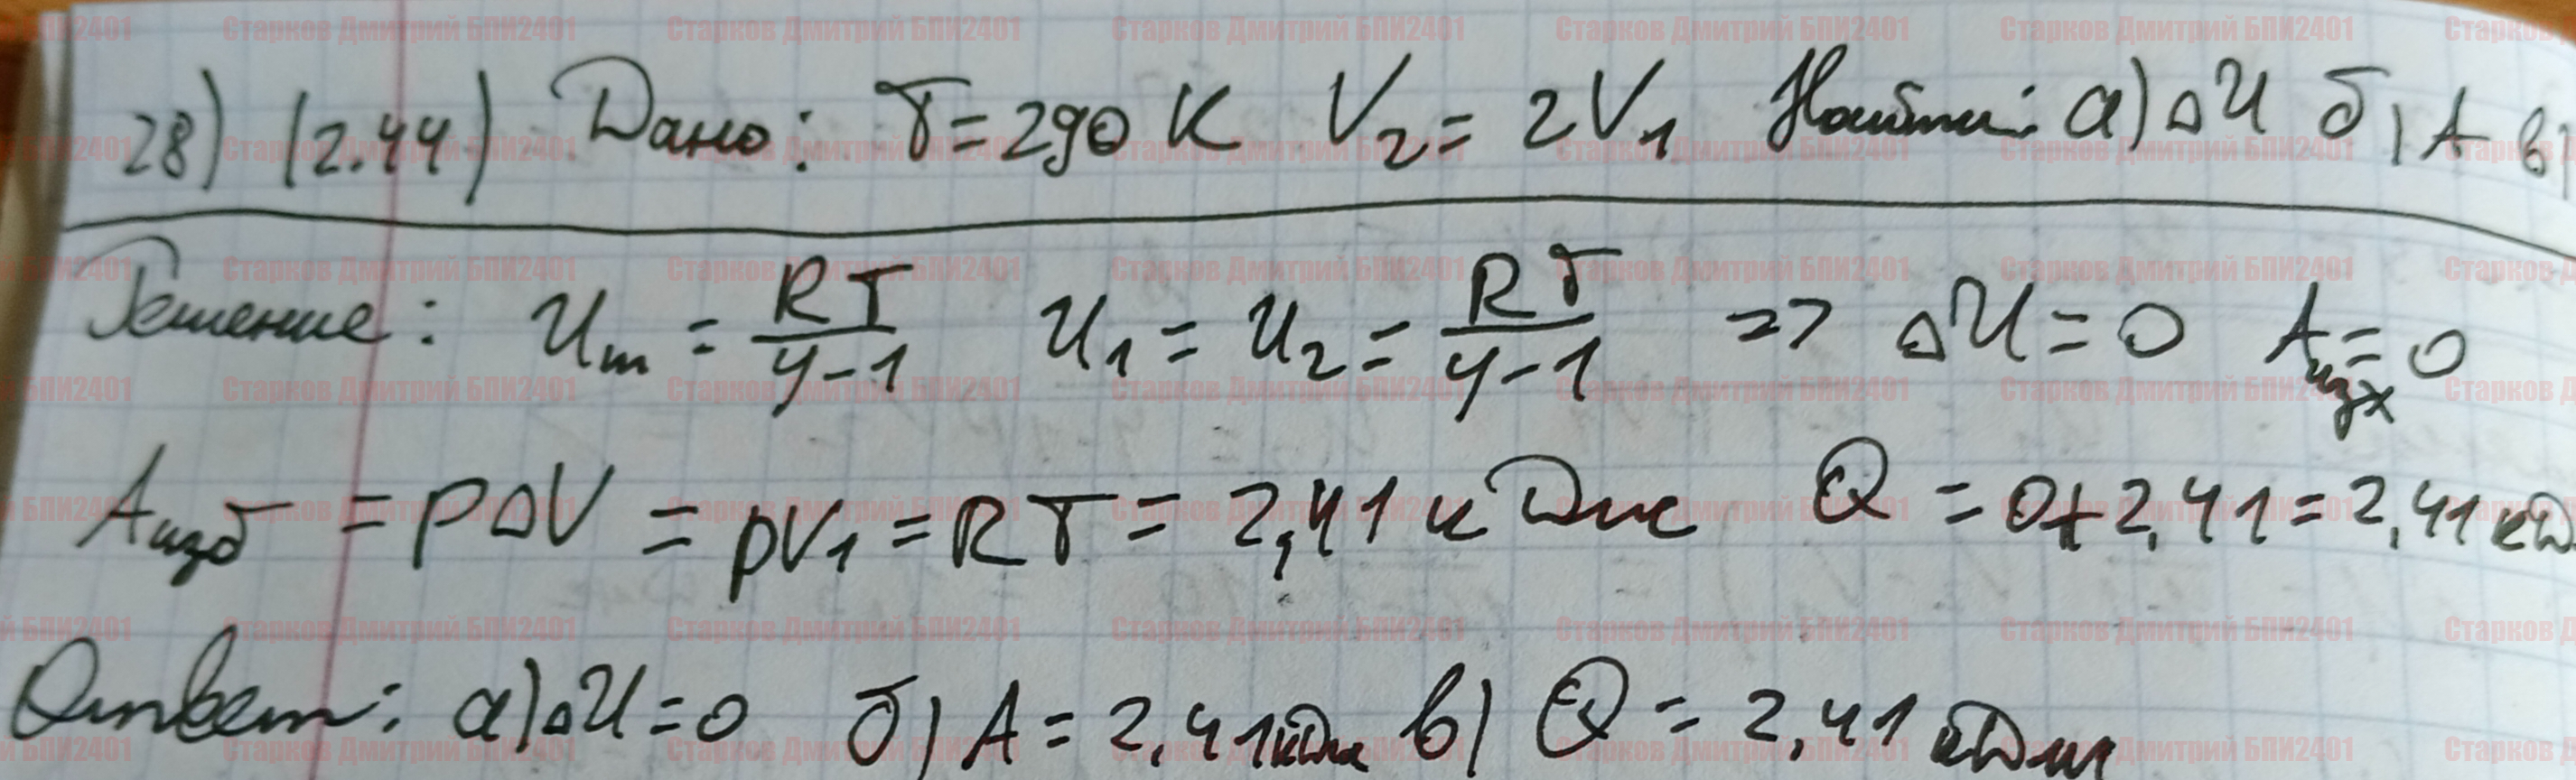 28) (2.44) Дано: T = 290 K V₂ = 2V₁ Найти: а) ΔU б) A в)
Решение: Uₘ = RT/(γ-1) U₁ = U₂ = RT/(γ-1) => ΔU = 0 Aизх = 0
Aизб = pΔV = pV₁ = RT = 2,41 кДж Q = 0+2,41 = 2,41 кД
Ответ: а) ΔU = 0 б) A = 2,41 кДж в) Q = 2,41 кДж
Старков Дмитрий БПИ2401